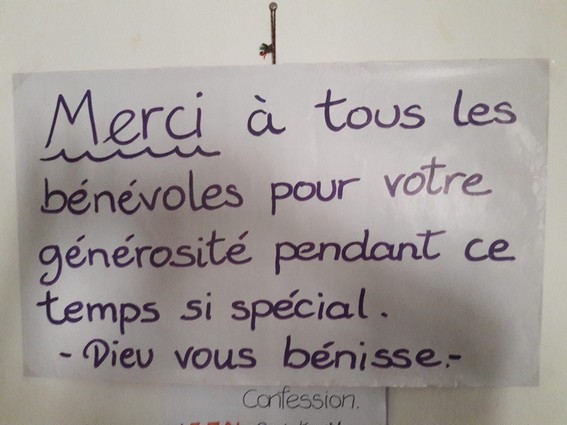 Merci à tous les
bénévoles pour votre
générosité pendant ce
temps si spécial.
- Dieu vous bénisse.-
Confession.